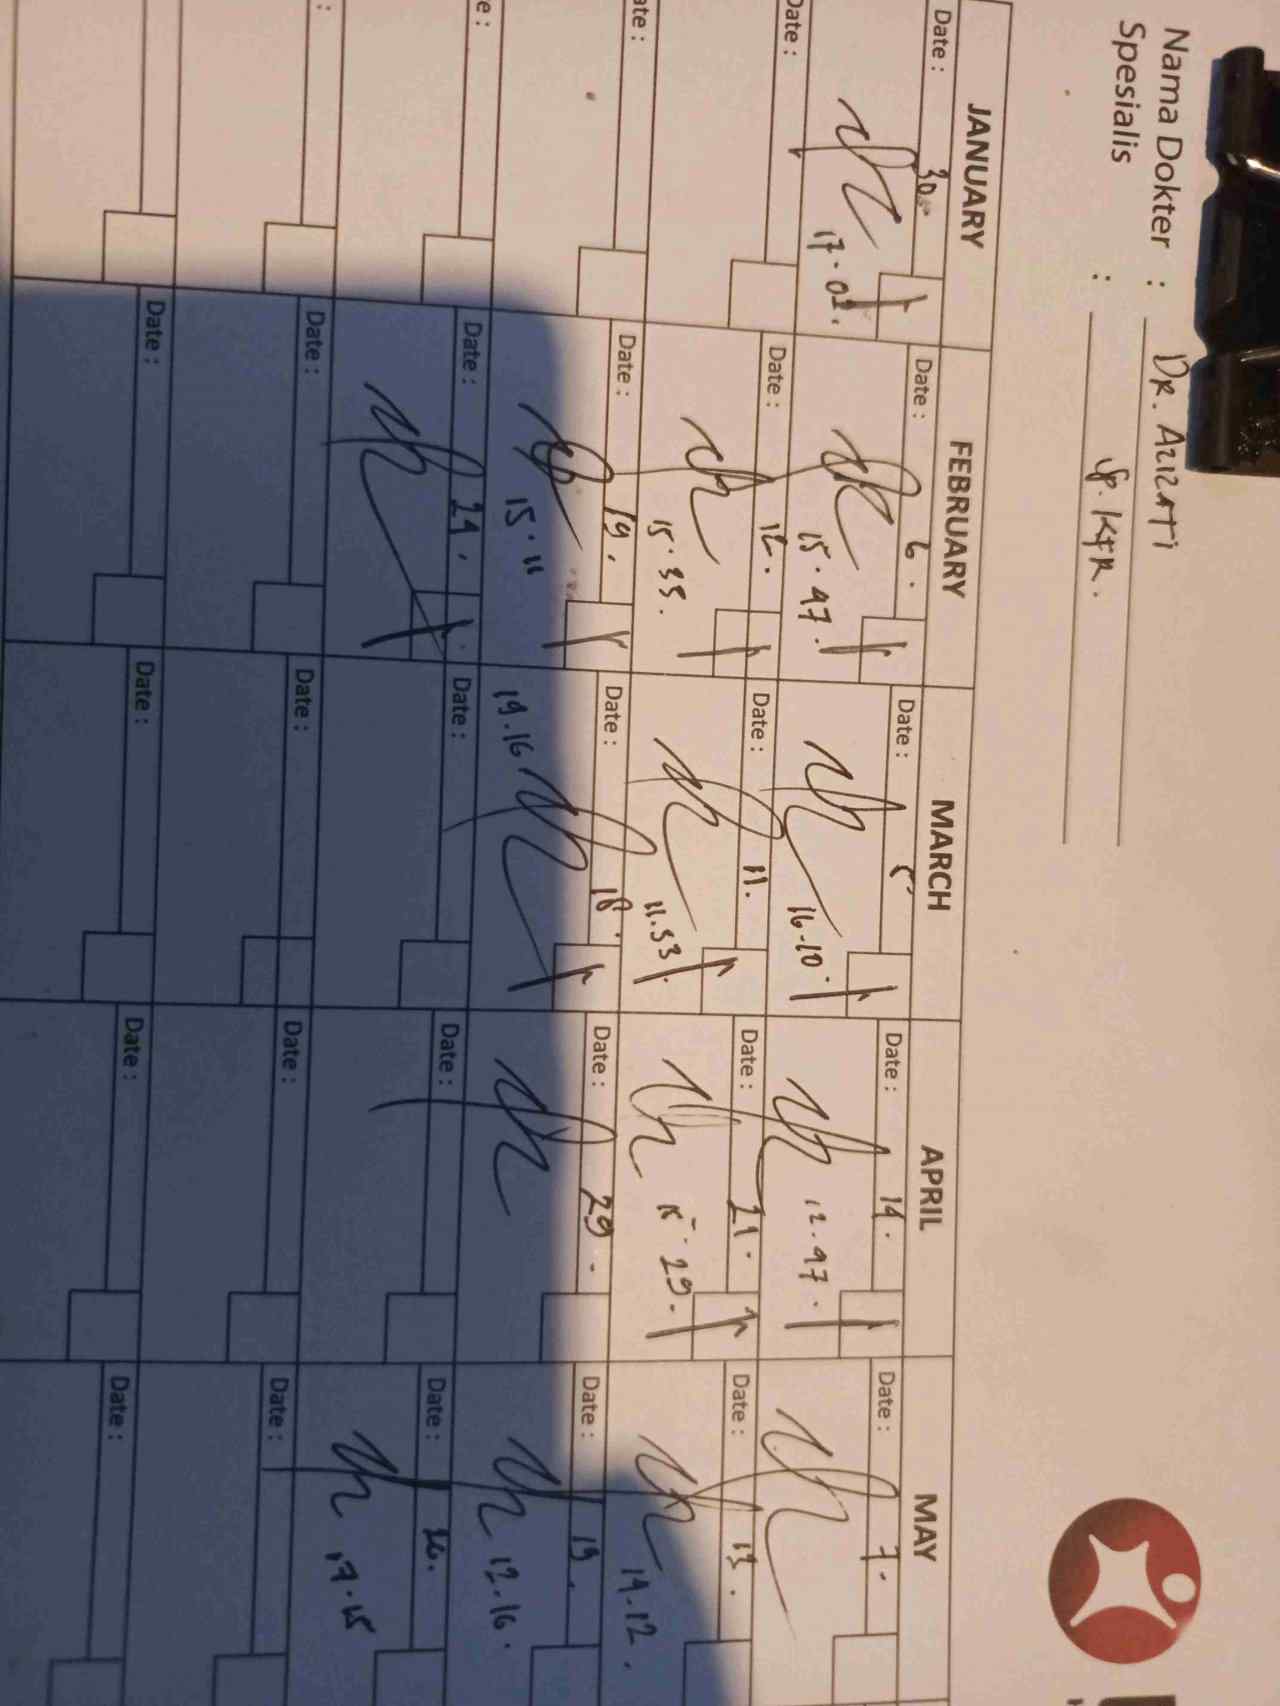 Nama Dokter : DR. AZIZATI
Spesialis : Sp. KFR.
JANUARY FEBRUARY MARCH APRIL MAY
Date : 30. Date : 6. Date : 5 Date : 14. Date : 7.
17.02. 15.47. 16.10. 12.47.
Date : Date : 12. Date : 11. Date : 21. Date : 13.
15.35. 11.53. 15.29. 14.12.
ate : Date : 19. Date : 18. Date : 29. Date : 19.
15.11 19.16 12.16.
e : Date : 24. Date : Date : Date : 26.
17.15
: Date : Date : Date : Date :
Date : Date : Date : Date :